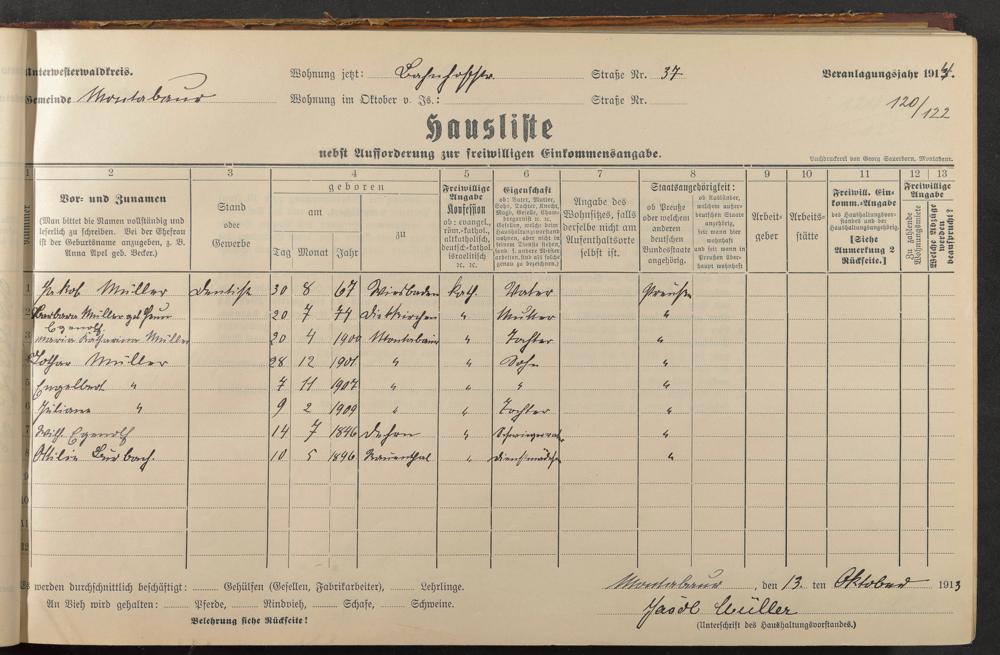 Unterwesterwaldkreis. Wohnung jetzt: Bahnhofstr. Straße Nr. 37 Veranlagungsjahr 1914.
Gemeinde Montabaur Wohnung im Oktober v. Js.: Straße Nr. 120/122
Hausliste
nebst Aufforderung zur freiwilligen Einkommensangabe.
Buchdruckerei von Georg Sauerborn, Montabaur.
1 2 3 4 5 6 7 8 9 10 11 12 13
Nummer
Vor- und Zunamen
(Man bittet die Namen vollständig und
leserlich zu schreiben. Bei der Ehefrau
ist der Geburtsname anzugeben, z. B.
Anna Apel geb. Becker.)
Stand
oder
Gewerbe
geboren
am
zu
Tag Monat Jahr
Freiwillige
Angabe
Konfession
ob: evangel.,
röm.-kathol.,
altkatholisch,
deutsch-kathol.
israelitisch
ec. ec.
Eigenschaft
ob: Vater, Mutter,
Sohn, Tochter, Knecht,
Magd, Geselle,
Angabe des
Wohnsitzes, falls
derselbe nicht am
Aufenthaltsorte
selbst ist.
Staatsangehörigkeit:
ob Preuße
oder welchem
anderen
deutschen
Bundesstaate
angehörig.
ob Ausländer,
welchem außer-
deutschen Staate
angehörig,
seit wann hier
wohnhaft
und seit wann in
Preußen über-
haupt wohnhaft
Arbeit-
geber
Arbeits-
stätte
Freiwill. Ein-
komm.-Angabe
des Haushaltungsvor-
standes und der
Haushaltungsangehörig.
[Siehe
Anmerkung 2
Rückseite.]
Freiwillige
Angabe
Zu zahlende
Wohnungsmiete
Welche Abzüge
werden
beansprucht?
1 Jakob Müller Dentist 30 8 67 Wiesbaden kath. Vater Preuße
2 Barbara Müller geb. 20 7 74 Dietkirchen " Mutter "
Egenolf
3 Maria Katharina Müller 20 4 1900 Montabaur " Tochter "
4 Lothar Müller 28 12 1901 " " Sohn "
5 Engelbert " 7 11 1907 " " " "
6 Juliane " 9 2 1909 " " Tochter "
7 Wilh. Egenolf 14 7 1846 Dehrn " "
8 Ottilie Burbach. 10 5 1896 Rauenthal " Dienstmädchen "
9
10
11
12
Es werden durchschnittlich beschäftigt: Gehülfen (Gesellen, Fabrikarbeiter), Lehrlinge.
An Vieh wird gehalten: Pferde, Rindvieh, Schafe, Schweine.
Belehrung siehe Rückseite!
Montabaur, den 13. ten Oktober 1913
Jacob Müller
(Unterschrift des Haushaltungsvorstandes.)